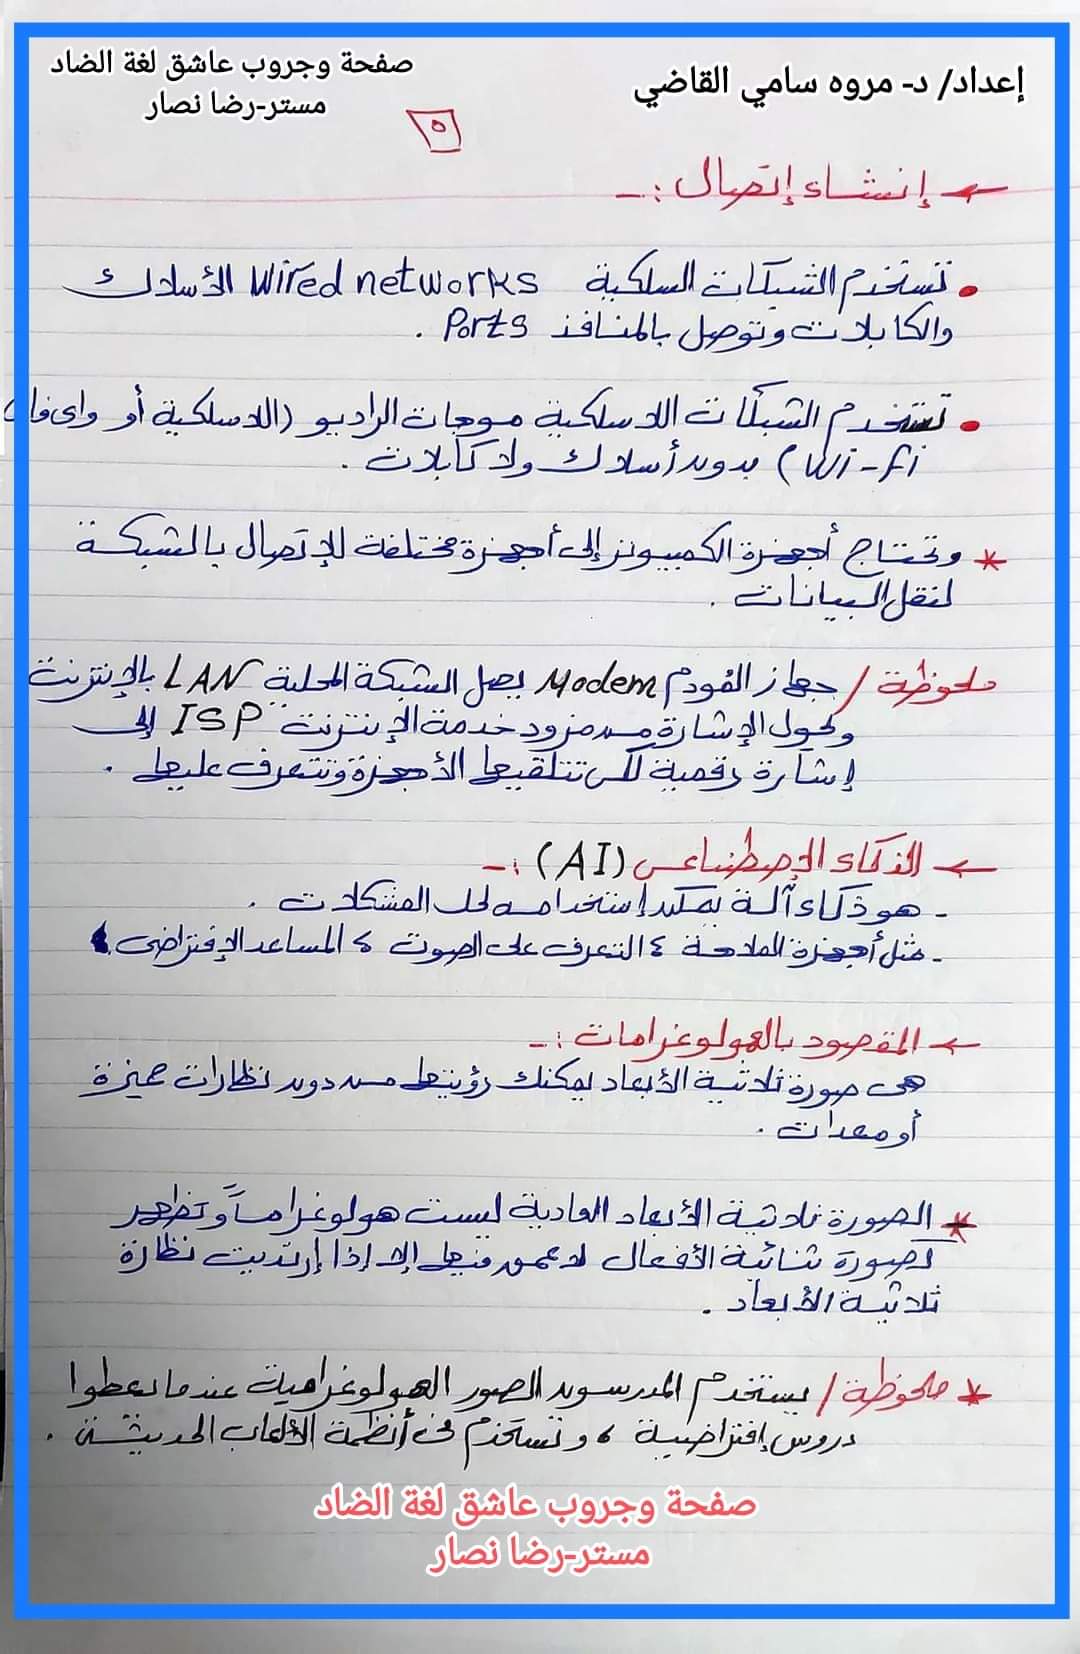 إعداد/ د- مروه سامي القاضي
صفحة وجروب عاشق لغة الضاد
مستر-رضا نصار
٥
← إنشاء إتصال :-
• تستخدم الشبكات السلكية Wired networks الأسلاك
والكابلات وتوصل بالمنافذ Ports .
• تستخدم الشبكات اللاسلكية موجات الراديو (اللاسلكية أو واى فاى
Wi-Fi) بدون أسلاك ولا كابلات .
* وتحتاج أجهزة الكمبيوتر إلى أجهزة مختلفة للإتصال بالشبكة
لنقل البيانات .
ملحوظة / جهاز المُودم Modem يصل الشبكة المحلية LAN بالإنترنت
ويحول الإشارة من مزود خدمة الإنترنت " ISP إلى
إشارة رقمية لكى تتلقيها الأجهزة وتتعرف عليها .
← الذكاء الإصطناعى (AI) :-
- هو ذكاء آلة يمكن إستخدامه لحل المشكلات .
- مثل أجهزة الملاحة ، التعرف على الصوت ، المساعد الإفتراضى
← المقصود بالهولوغرامات :-
هى صورة ثلاثية الأبعاد يمكنك رؤيتها من دون نظارات مميزة
أو معدات .
* الصورة ثلاثية الأبعاد العادية ليست هولوغراماً وتظهر
كصورة ثنائية الأفعال لا عمق فيها إلا إذا إرتديت نظارة
ثلاثية الأبعاد .
* ملحوظة / يستخدم المدرسون الصور الهولوغرامية عندما يعطوا
دروس إفتراضية ، وتستخدم فى أنظمة الألعاب الحديثة .
صفحة وجروب عاشق لغة الضاد
مستر-رضا نصار